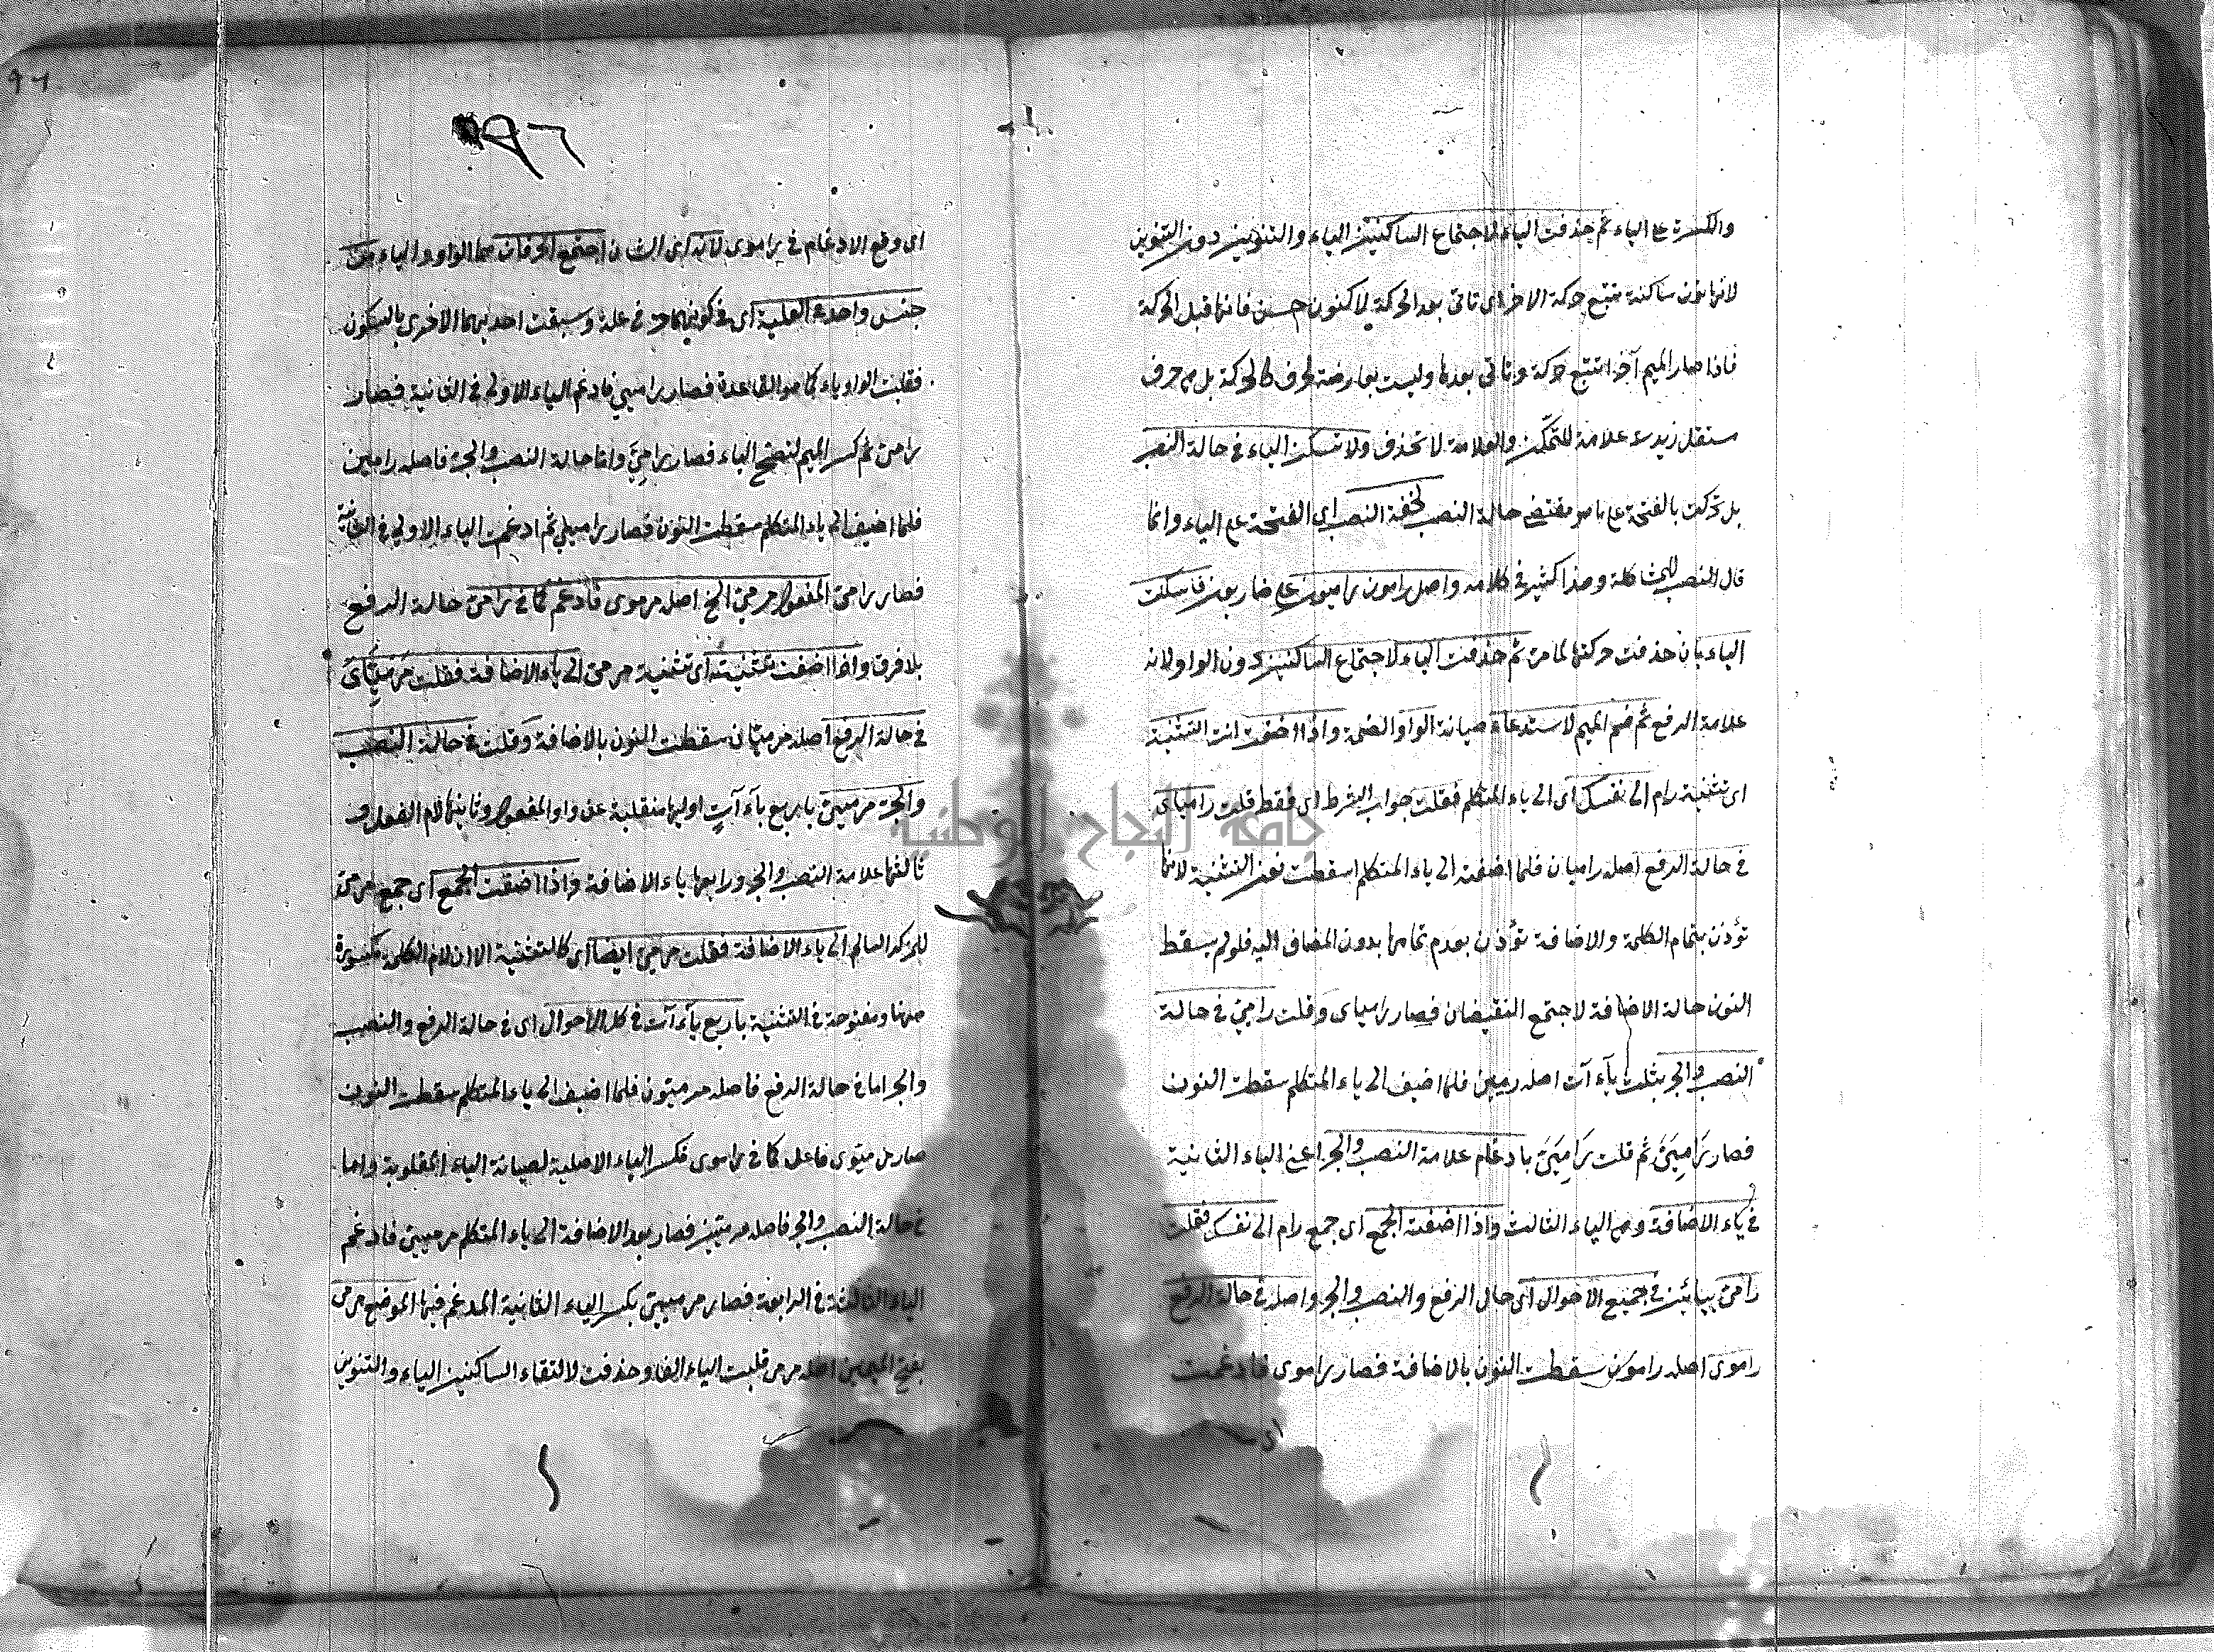 والكسرة على الياء ثم حذفت الياء لاجتماع الساكنين الياء والتنوين دون التنوين
لانها نون ساكنة تتبع حركة الاخر اى تاتى بعد الحركة لا كنون حسن فانها قبل الحركة
فاذا صار الميم آخرا تتبع حركة وتاتى بعدها وليست بعارضة لحرف كالحركة بل هى حرف
مستقل زيدت علامة للتمكن والعلامة لا تحذف ولا تسكن الياء فى حالة النصب
بل تحركت بالفتحة على ما هو مقتضى حالة النصب لخفة النصب اى الفتحة على الياء وانما
قال النصب للمشاكلة وهذا كثير فى كلامه واصل رامون راميون على ضاربون فاسكنت
الياء بان حذفت حركتها لما مر ثم حذفت الياء لاجتماع الساكنين دون الواو لانه
علامة الرفع ثم ضم الميم لاستدعاء صيانة الواو الضمة واذا اضفت انت التثنية
اى تثنية رام الى نفسك اى الى ياء المتكلم فقلت جواب الشرط اى فقط قلت رامياى
فى حالة الرفع اصله راميان فلما اضفته الى ياء المتكلم اسقطت نون التثنية لانها
تؤذن بتمام الكلمة والاضافة تؤذن بعدم تمامها بدون المضاف اليه فلو لم يسقط
النون حالة الاضافة لاجتمع النقيضان فصار رامياى وقلت رامىّ فى حالة
النصب والجر بثلث ياء آت اصله رميين فلما اضيف الى ياء المتكلم سقطت النون
فصار رَامِيَىْ ثم قلت رَامِيَىَّ بادغام علامة النصب والجر اعنى الياء الثانية
فى ياء الاضافة وهى الياء الثالث واذا اضفت الجمع اى جمع رام الى نفسك فقلت
رامىّ بيائين فى جميع الاحوال اى حال الرفع والنصب والجر واصله فى حالة الرفع
راموى اصله رامون سقطت النون بالاضافة فصار راموى فادغمت
اى
٩٦
٩٦
اى وقع الادغام فى راموى لانه اى الشان اجتمع الحرفان هما الواو والياء من
جنس واحد فى العلية اى فى كونهما حرفى علة وسبقت احديهما الاخرى بالسكون
فقلبت الواو ياء كما هو القاعدة فصار رامىى فادغم الياء الاولى فى الثانية فصار
رامىّ ثم كسر الميم لتصح الياء فصار رامِىَّ واما حالة النصب والجر فاصله رامين
فلما اضيف الى ياء المتكلم سقطت النون فصار راميى ثم ادغمت الياء الاولى فى الثانية
فصار رامىّ المفعول مرمىّ الخ اصله مرموى فادغم كما فى رامىّ حالة الرفع
بلا فرق واذا اضفت تثنيته اى تثنية مرمى الى ياء الاضافة فقلت مَرْمِيَّاىَ
فى حالة الرفع اصله مرميّان سقطت النون بالاضافة وقلت فى حالة النصب
والجر مرميىّ باربع ياء آتٍ اوليها منقلبة عن واو المفعول وثانيها لام الفعل و
ثالثها علامة النصب والجر ورابعها ياء الاضافة واذا اضفت الجمع اى جمع مرمىّ
المذكر السالم الى ياء الاضافة فقلت مرمىّ ايضا اى كالتثنية الا ان لام الكلمة مكسورة
ههنا ومفتوحة فى التثنية باربع ياء آت فى كل الاحوال اى فى حالة الرفع والنصب
والجر اما فى حالة الرفع فاصله مرميّون فلما اضيف الى ياء المتكلم سقطت النون
صار مرميّوى فاعل كما فى راموى فكسر الياء الاصلية لصيانة الياء المقلوبة واما
فى حالة النصب والجر فاصله مرميّين فصار بعد الاضافة الى ياء المتكلم مرميين فادغم
الياء الثالثة فى الرابعة فصار مرميىّ بكسر الياء الثانية المدغم فيها الموضع مرمى
بفتح الميمين اصله مرمى قلبت الياء الفا وحذفت لالتقاء الساكنين الياء والتنوين
جامعة النجاح الوطنية